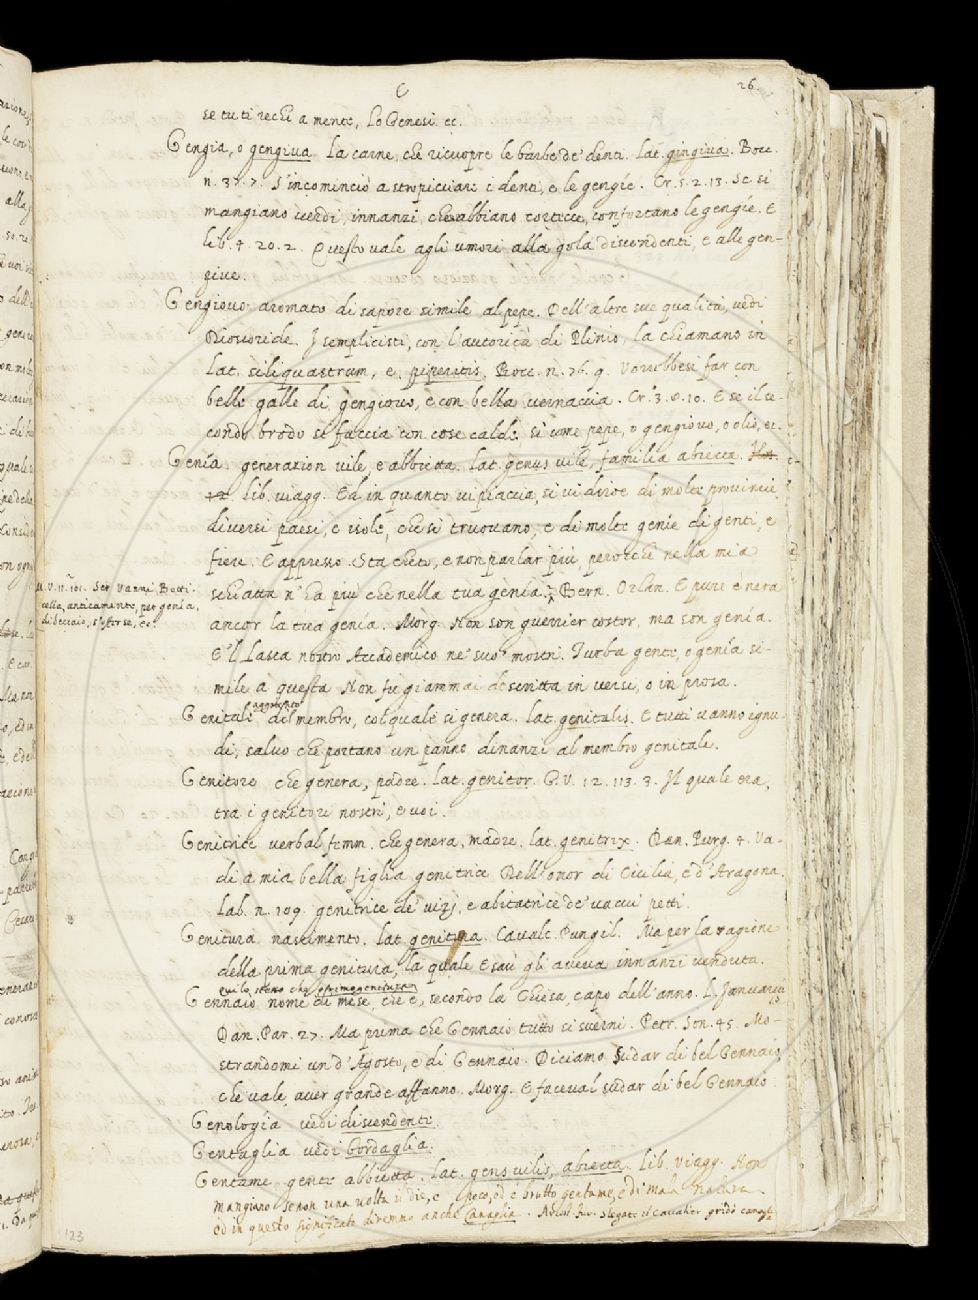 G
26.
se tu ti rechi a mente, Lo Genesi. ec.
Gengia, o gengiva La carne, che ricuopre le barbe de' denti. Lat. gingiva. Bocc.
n. 37. 7. S'incominciò a stropicciare i denti, e le gengíe. Cr. 5. 2. 13. Se si
mangiano verdi, innanzi, che abbiano corticce, confortano le gengíe. E
lib. 4. 20. 2. Questo vale agli umori alla gola discendenti, e alle gen-
give.
Gengiovo aromato di sapore simile al pepe. Dell'altre sue qualità, vedi
Dioscoride. I semplicisti, con l'autorità di Plinio, la chiamano in
Lat. siliquastrum, e piperitis. Bocc. n. 76. 9. Vorrebbesi far con
belle galle di gengiovo, e con bella vernaccia. Cr. 3. 8. 10. E se il se-
condo brodo si faccia con cose calde, sì come pepe, o gengiovo, o olio, ec.
Genía generazion vile, e abbietta. Lat. genus vile, familia abiecta.
Lib. viagg. Ed in quanto vi piaccia, si vi dirò e di molte provincie,
diversi paesi, e isole, che si truovano, e di molte genie di genti, e
fiere. E appresso. Sta cheto, e non parlar più, perocchè nella mia
schiatta n'ha più che nella tua genía. Bern. Orlan. E pure e nera
ancor la tua genía. Morg. Non son guerrier costor, ma son genía.
E'l Lasca nostro Accademico ne' suo' mostri. Turba gente, o genía si-
mile a questa Non fu giammai descritta in versi, o in prosa.
M. V. 11. 101. Ser Vanni Botti-
cella, anticamente, per genía,
di beccaio, si forse, ec.
Genitali aggiunto del membro, col quale si genera. Lat. genitalis. E tutti vanno ignu-
di, salvo che portano un panno dinanzi al membro genitale.
Genitore che genera, padre. Lat. genitor. G. V. 12. 113. 3. Il quale era,
tra i genitori nostri, e voi.
Genitrice verbal femm. che genera, madre. Lat. genitrix. Dan. Purg. 4. Va-
di a mia bella figlia, genitrice Dell'onor di Cicilia, e d'Aragona.
Lab. n. 109. genitrice de' vizj, e abitatrice de' cacui petti.
Genitura nascimento. Lat. genitura. Cavalc. Pungil. Ma per la ragione
della prima genitura, la quale Esaù gli aveva innanzi venduta.
qui lo stesso che primogenitura
Gennaio nome di mese, che è, secondo la Chiesa, capo dell'anno. L. Januarius
Dan. Par. 27. Ma prima che Gennaio tutto si sverni. Petr. Son. 45. Mo-
strandomi un d'Agosto, e di Gennaio. Diciamo Sudar di bel Gennaio,
che vale, aver grande affanno. Morg. E faceval sudar di bel Gennaio.
Genología vedi discendenti.
Gentaglia vedi bordaglia.
Gentame gente abbietta. Lat. gens vilis, abiecta. Lib. Viagg. Non
mangiano se non una volta il die, e poco, ed è brutto gentame, e di mala natura.
ed in questo significato diremmo anche Canaglia. Ariost. fur. Slegate il Cavalier gridò canagl.
123